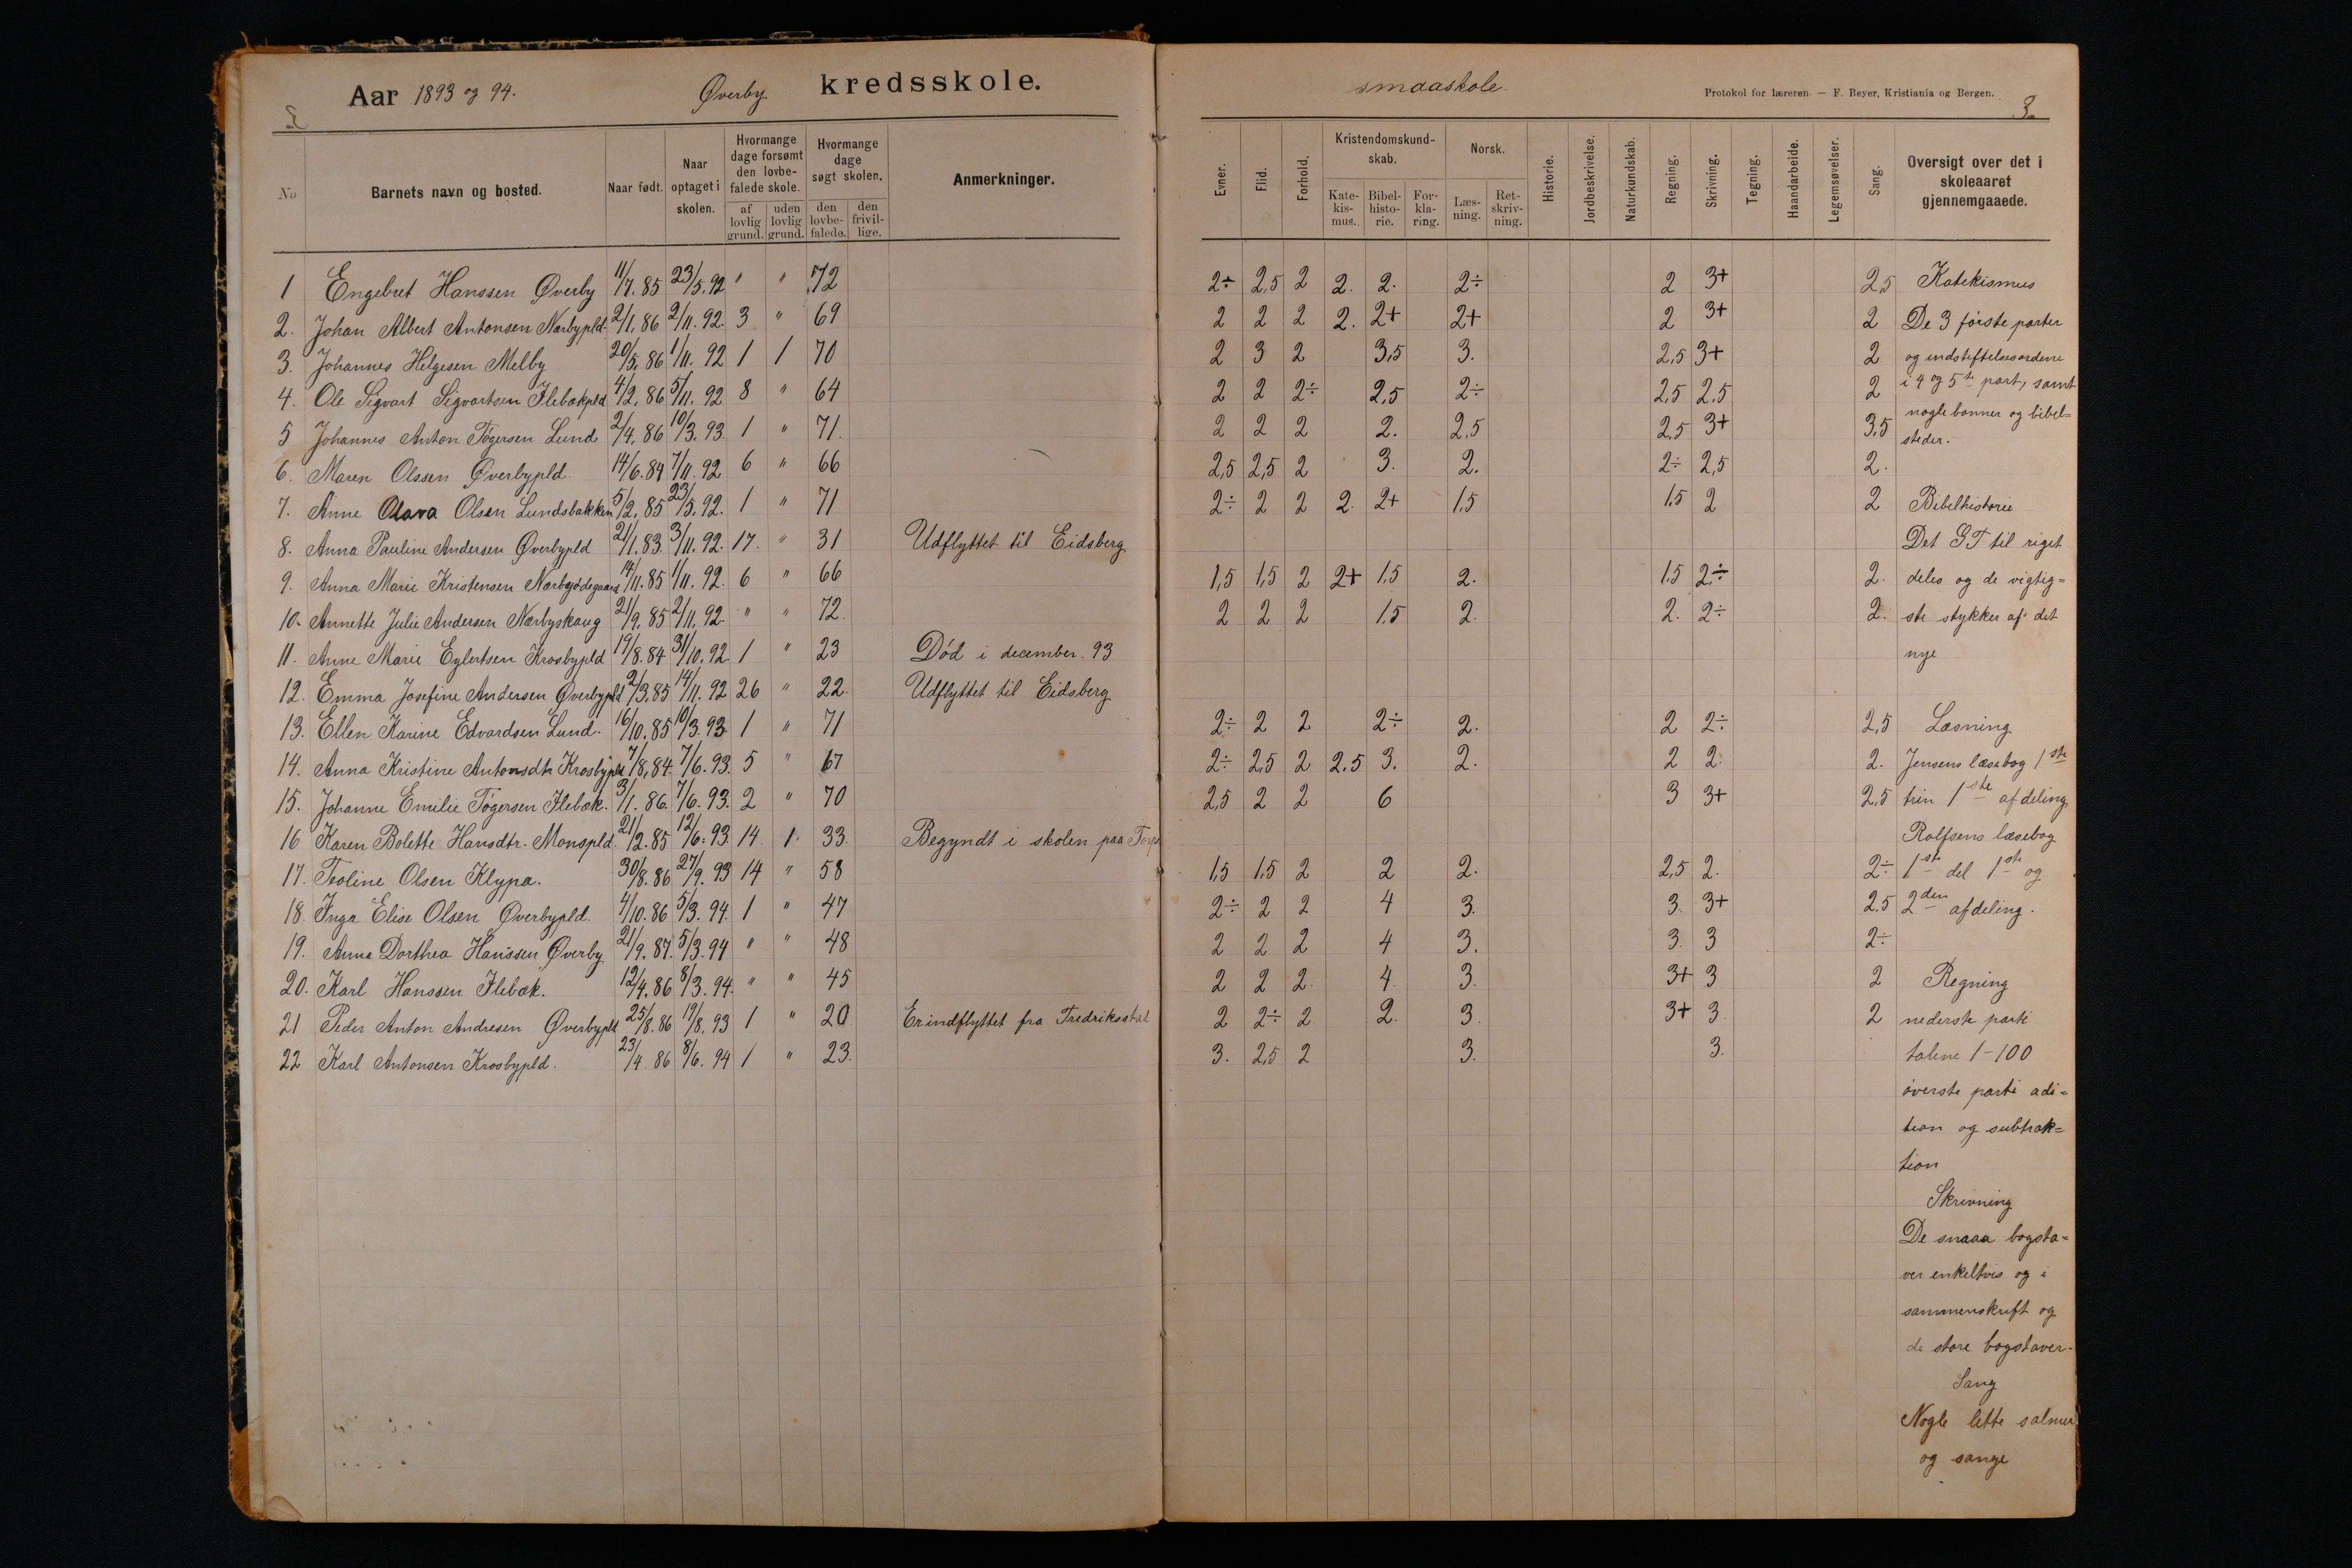 Aar 1893 og 94. Øverby kredsskole.
smaaskole.
Protokol for læreren. — F. Beyer, Kristiania og Bergen.
3.
No Barnets navn og bosted. Naar født. Naar optaget i skolen. Hvormange dage forsømt den lovbefalede skole. af lovlig grund. uden lovlig grund. Hvormange dage søgt skolen. den lovbefalede. den frivillige. Anmerkninger.
Evner. Flid. Forhold. Kristendomskundskab. Katekismus. Bibelhistorie. Forklaring. Norsk. Læsning. Retskrivning. Historie. Jordbeskrivelse. Naturkundskab. Regning. Skrivning. Tegning. Haandarbeide. Legemsøvelser. Sang. Oversigt over det i skoleaaret gjennemgaaede.
1 Engebret Hanssen Øverby 11/7.85 23/5.92 " " 72 2÷ 2,5 2 2. 2. 2÷ 2 3+ 2,5 Katekismus
2. Johan Albert Antonsen Nørbypld. 2/1.86 2/11.92. 3 " 69 2 2 2 2. 2+ 2+ 2 3+ 2 De 3 første parter
3. Johannes Helgesen Melby 20/5.86 1/11.92 1 1 70 2 3 2 3,5 3. 2,5 3+ 2 og indstiftelsesordene
4. Ole Sigvart Sigvartsen Ilebækpld 4/2.86 5/11.92 8 " 64 2 2 2÷ 2,5 2÷ 2,5 2,5 2 i 4 og 5te part, samt
5 Johannes Anton Tøgersen Lund 2/4.86 10/3.93. 1 " 71. 2 2 2 2. 2,5 2,5 3+ 3,5 nogle bønner og bibel=
steder.
6. Maren Olssen Øverbypld. 14/6.84 7/11.92 6 " 66 2,5 2,5 2 3. 2. 2÷ 2,5 2.
7. Anne Olava Olsen Lundsbakken 5/2.85 23/5.92. 1 " 71 2÷ 2 2 2. 2+ 1,5 1,5 2 2 Bibelhistorie
8. Anna Pauline Andersen Øverbypld 21/1.83. 3/11.92. 17. " 31 Udflyttet til Eidsberg Det GT til riget
9. Anna Marie Kristensen Nørbyødegaard 14/11.85 1/11.92. 6 " 66 1,5 1,5 2 2+ 1,5 2. 1,5 2÷ 2. deles og de vigtig=
10. Annette Julie Andersen Nørbyskaug 21/9.85 2/11.92. " " 72. 2 2 2 1,5 2. 2. 2÷ 2. ste stykker af det
11. Anne Marie Eylertsen Krosbypld 19/8.84 31/10.92. 1 " 23 Død i december. 93 nye
12. Emma Josefine Andersen Øverbypld 2/3.85 14/11.92 26 " 22. Udflyttet til Eidsberg
13. Ellen Karine Edvardsen Lund. 16/10.85 10/3.93. 1 " 71 2÷ 2 2 2÷ 2. 2 2÷ 2,5 Læsning
14. Anna Kristine Antonsdtr Krosbypld 7/8.84. 7/6.93. 5 " 67 2÷ 2,5 2 2.5 3. 2. 2 2. 2. Jensens læsebog 1ste
15. Johanne Emilie Tøgersen Ilebæk. 3/1.86. 7/6.93. 2 " 70 2,5 2 2 6 3 3+ 2,5 trin 1ste afdeling
16 Karen Bolette Hansdtr. Monspld. 21/12.85 12/6.93. 14 1. 33. Begyndt i skolen paa Torp Rolfsens læsebog
17. Teoline Olsen Klypa. 30/8.86 27/9.93 14 " 58 1,5 1,5 2 2 2. 2,5 2. 2÷ 1ste del 1ste og
18. Inga Elise Olsen Øverbypld. 4/10.86 5/3.94. 1 " 47 2÷ 2 2 4 3. 3. 3+ 2,5 2den afdeling.
19. Anne Dorthea Hanssen Øverby 21/9.87. 5/3.94 " " 48 2 2 2 4 3. 3. 3 2÷
20. Karl Hanssen Ilebæk. 12/4.86 8/3.94. " " 45 2 2 2. 4. 3. 3+ 3 2 Regning
21 Peder Anton Andresen Øverbypld 25/8.86 19/8.93 1 " 20 Er indflyttet fra Fredriksstad 2 2÷ 2 2. 3. 3+ 3. 2 nederste parti
22 Karl Antonsen Krosbypld. 23/4.86 8/6.94 1 " 23. 3. 2,5 2 3. 3. talene 1-100
øverste parti adi=
tion og subtrak=
tion
Skrivning
De smaa bogsta=
ver enkeltvis og i
sammenskrift og
de store bogstaver.
Sang
Nogle lette salmer
og sange